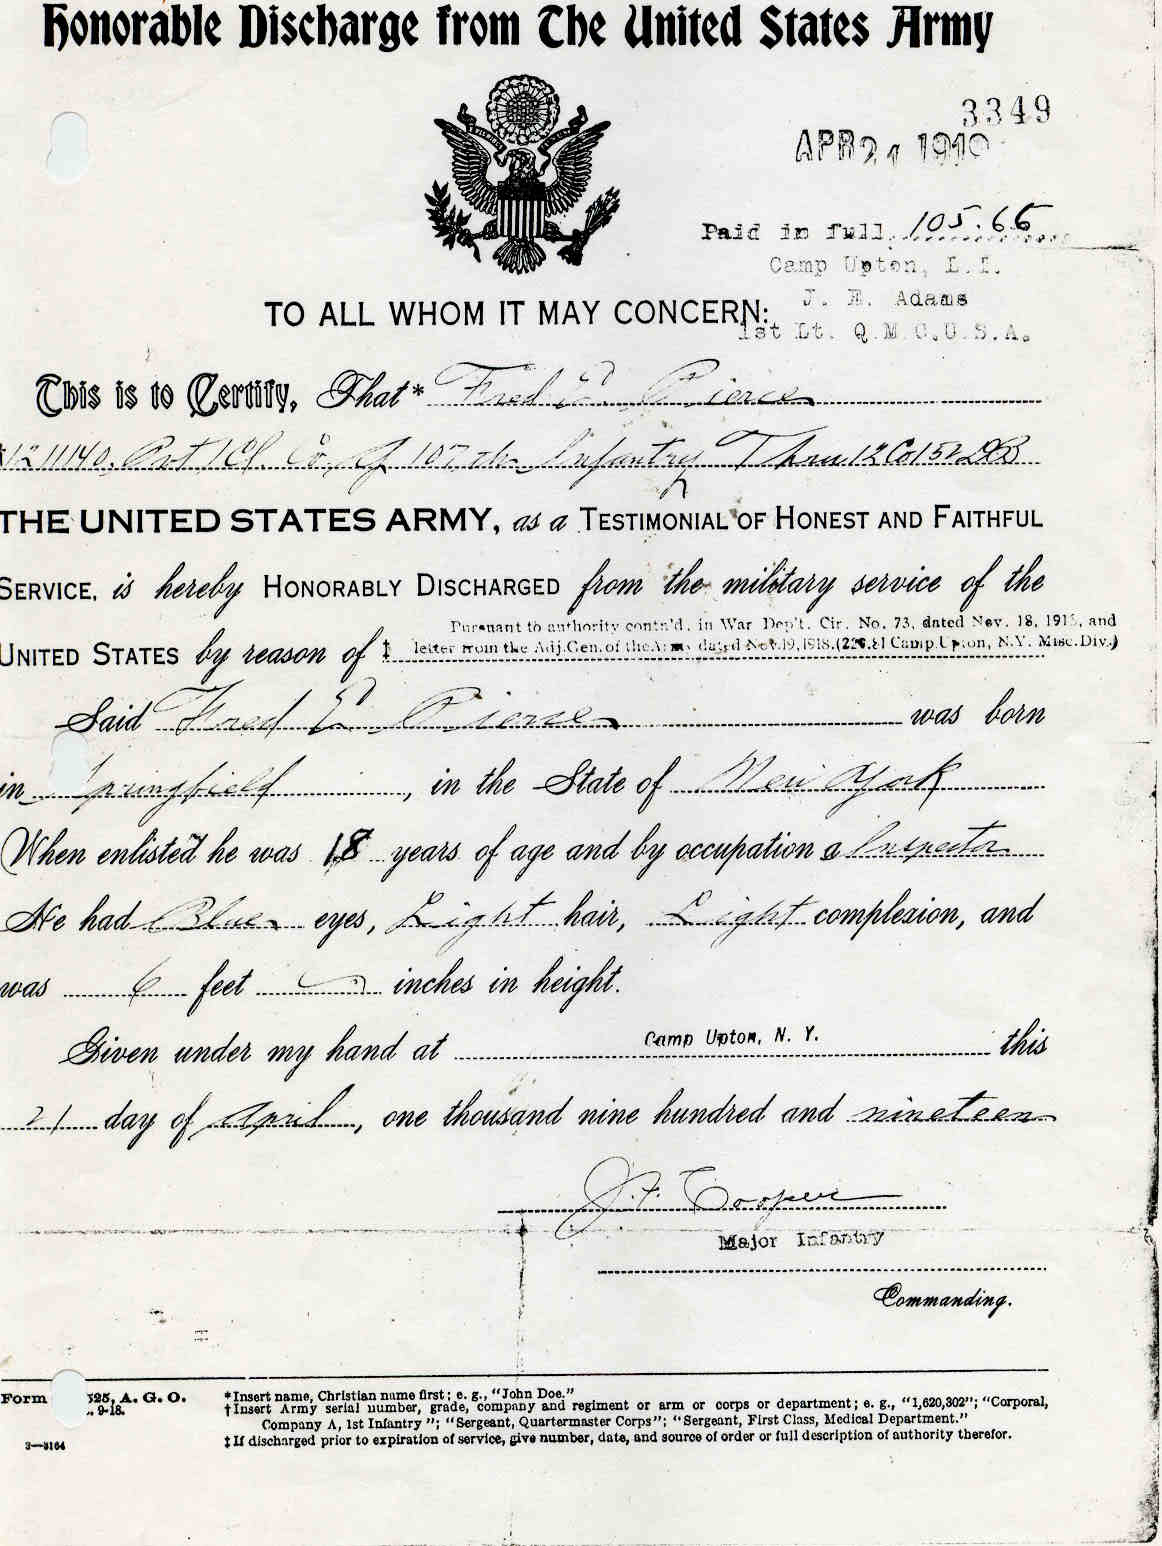 Honorable Discharge from The United States Army
3349
APR 21 1919
Paid in full 105.66
Camp Upton, L. I.
J. E. Adams
1st Lt. Q.M.C.U.S.A.
TO ALL WHOM IT MAY CONCERN:
This is to Certify, That* Fred E. Pierce
1211140, Pvt 1Cl. Co. 107th Infantry Thru 12 Co 152 DB
THE UNITED STATES ARMY, as a TESTIMONIAL OF HONEST AND FAITHFUL
SERVICE, is hereby HONORABLY DISCHARGED from the military service of the
Pursuant to authority contn'd. in War Dep't. Cir. No. 73, dated Nov. 18, 1918, and
UNITED STATES by reason of ‡ letter from the Adj.Gen.of the Army dated Nov.19,1918.(226.81 Camp Upton, N.Y. Misc.Div.)
Said Fred E. Pierce was born
in Springfield, in the State of New York
When enlisted he was 18 years of age and by occupation a Inspector
He had Blue eyes, Light hair, Light complexion, and
was 6 feet inches in height.
Given under my hand at Camp Upton, N. Y. this
21 day of April, one thousand nine hundred and nineteen
J. F. Cooper
Major Infantry
Commanding.
Form 525, A. G. O.
9-18.
*Insert name, Christian name first; e. g., "John Doe."
†Insert Army serial number, grade, company and regiment or arm or corps or department; e. g., "1,620,302"; "Corporal,
Company A, 1st Infantry"; "Sergeant, Quartermaster Corps"; "Sergeant, First Class, Medical Department."
‡If discharged prior to expiration of service, give number, date, and source of order or full description of authority therefor.
3—3164